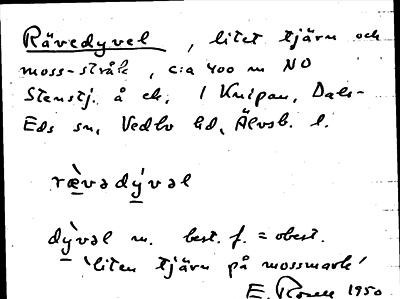 Rävedyvel, litet tjärn och
moss-stråk, c:a 400 m NO
Stenstj. å ek. 1 Knipan, Dals-
Eds sn, Vedbo hd, Älvsb. l.
ræ̀vədývəl
dỳvəl m. best. f. = obest.
'liten tjärn på mossmark'
E. Rosell 1950